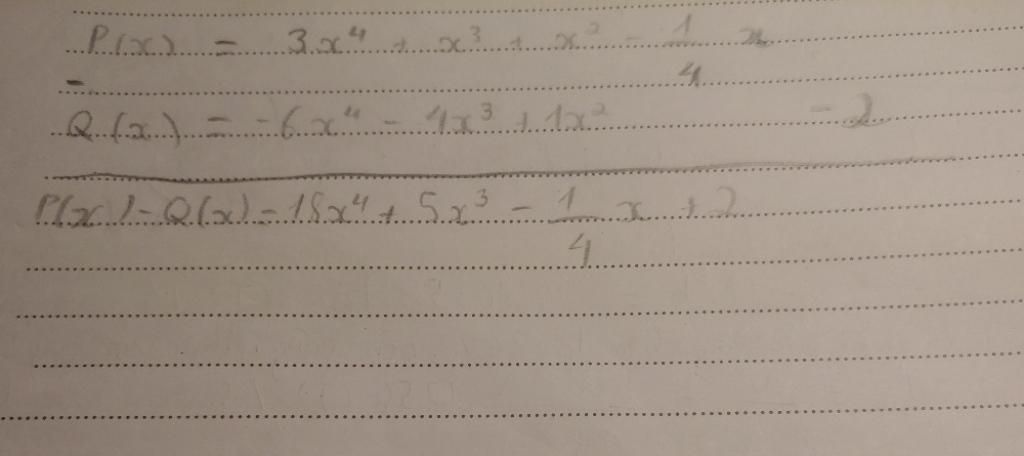 P(x) = 3x⁴ + x³ + x² - 1/4 x
-
Q(x) = -6x⁴ - 4x³ + 1x² - 2
P(x) - Q(x) = 18x⁴ + 5x³ - 1/4 x + 2